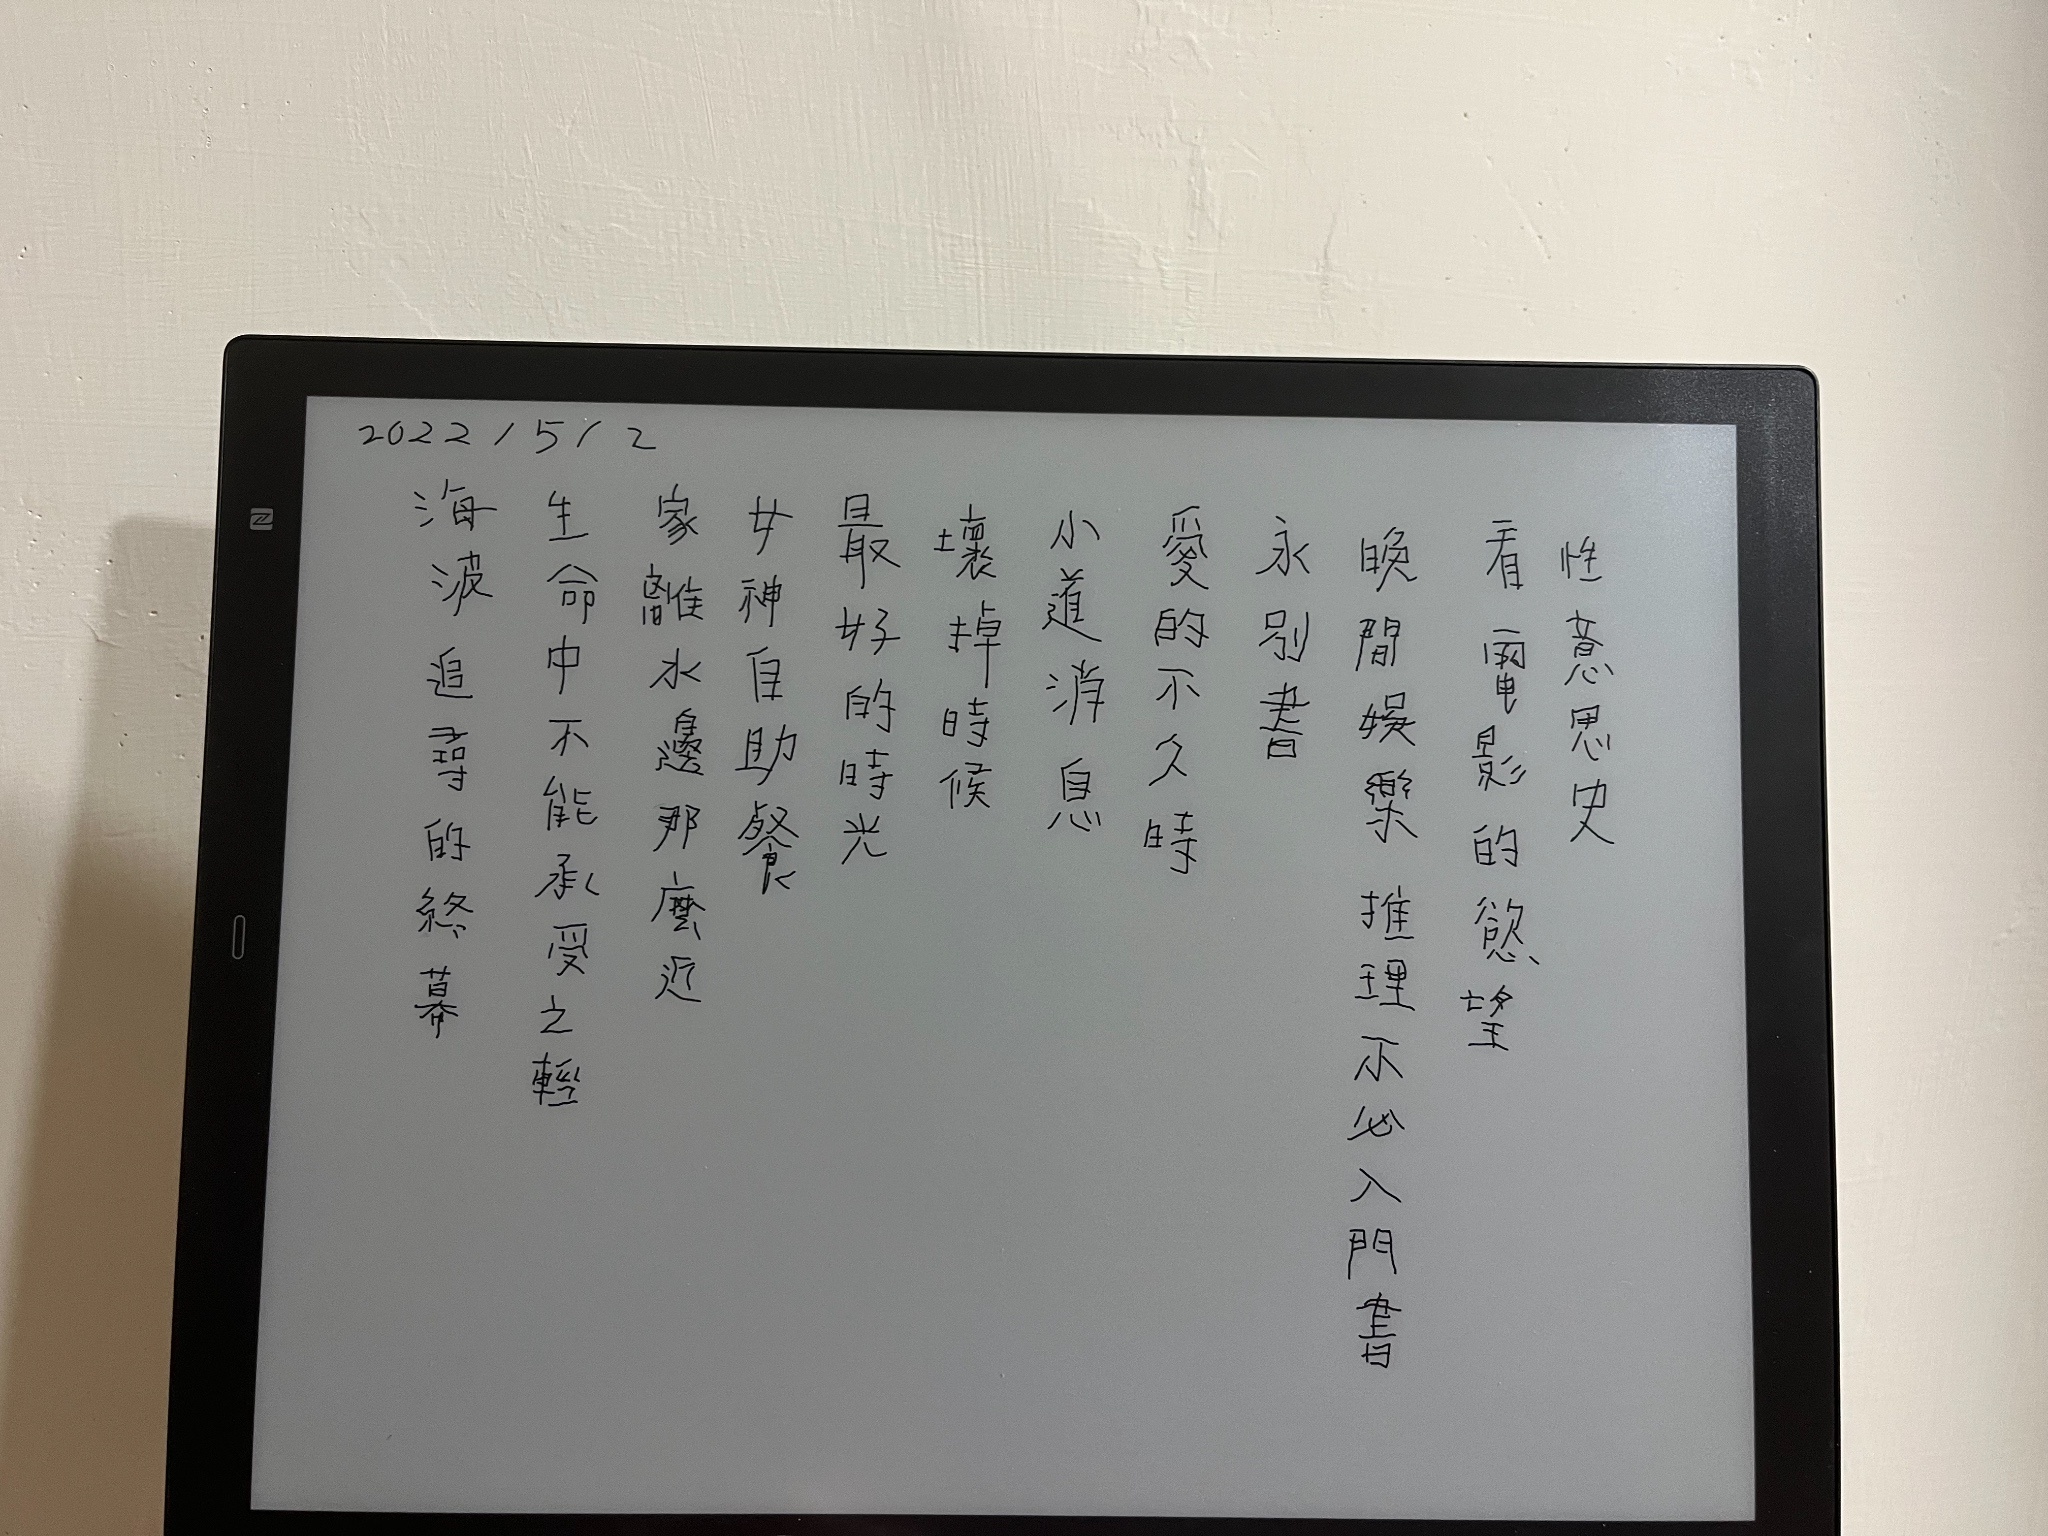 2022/5/2
性意思史
看電影的慾望
晚間娛樂推理不必入門書
永別書
愛的不久時
小道消息
壞掉時候
最好的時光
女神自助餐
家離水邊那麼近
生命中不能承受之輕
海波追尋的終幕